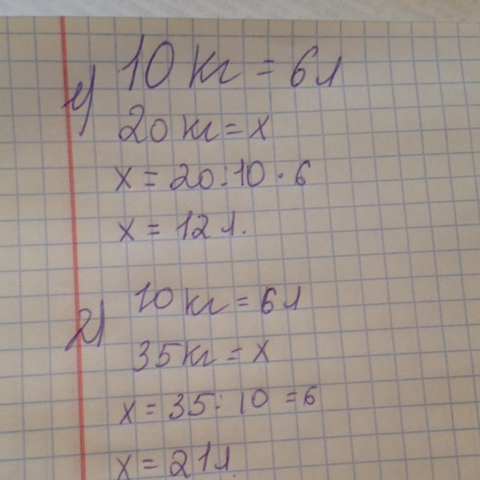 1) 10 кг = 6 л
20 кг = х
х = 20 : 10 · 6
х = 12 л.
2) 10 кг = 6 л
35 кг = х
х = 35 : 10 = 6
х = 21 л.